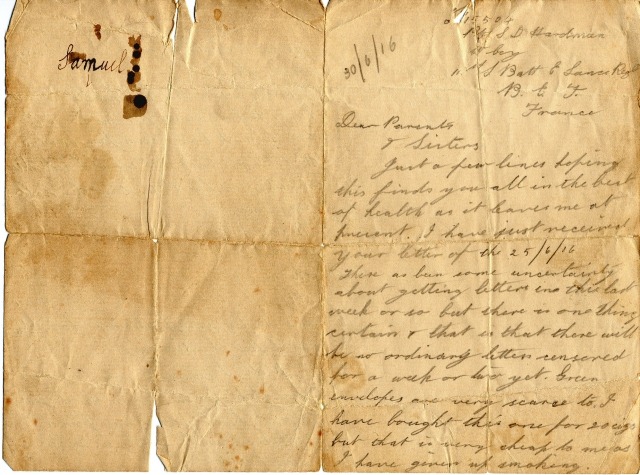 Samuel
30/6/16
15504
Pte S D Hardman
W Coy
11th S Batt E Lancs Regt
B. E. F.
France
Dear Parents
& Sisters
Just a few lines hoping
this finds you all in the best
of health as it leaves me at
present. I have just received
your letter of the 25/6/16
There as been some uncertainty
about getting letters this last
week or so but there is one thing
certain & that is that there will
be no ordinary letters censered
for a week or two yet. Green
envelopes are very scarce to. I
have bought this one for 20 cigs
but that is very cheap to me as
I have given up smoking.